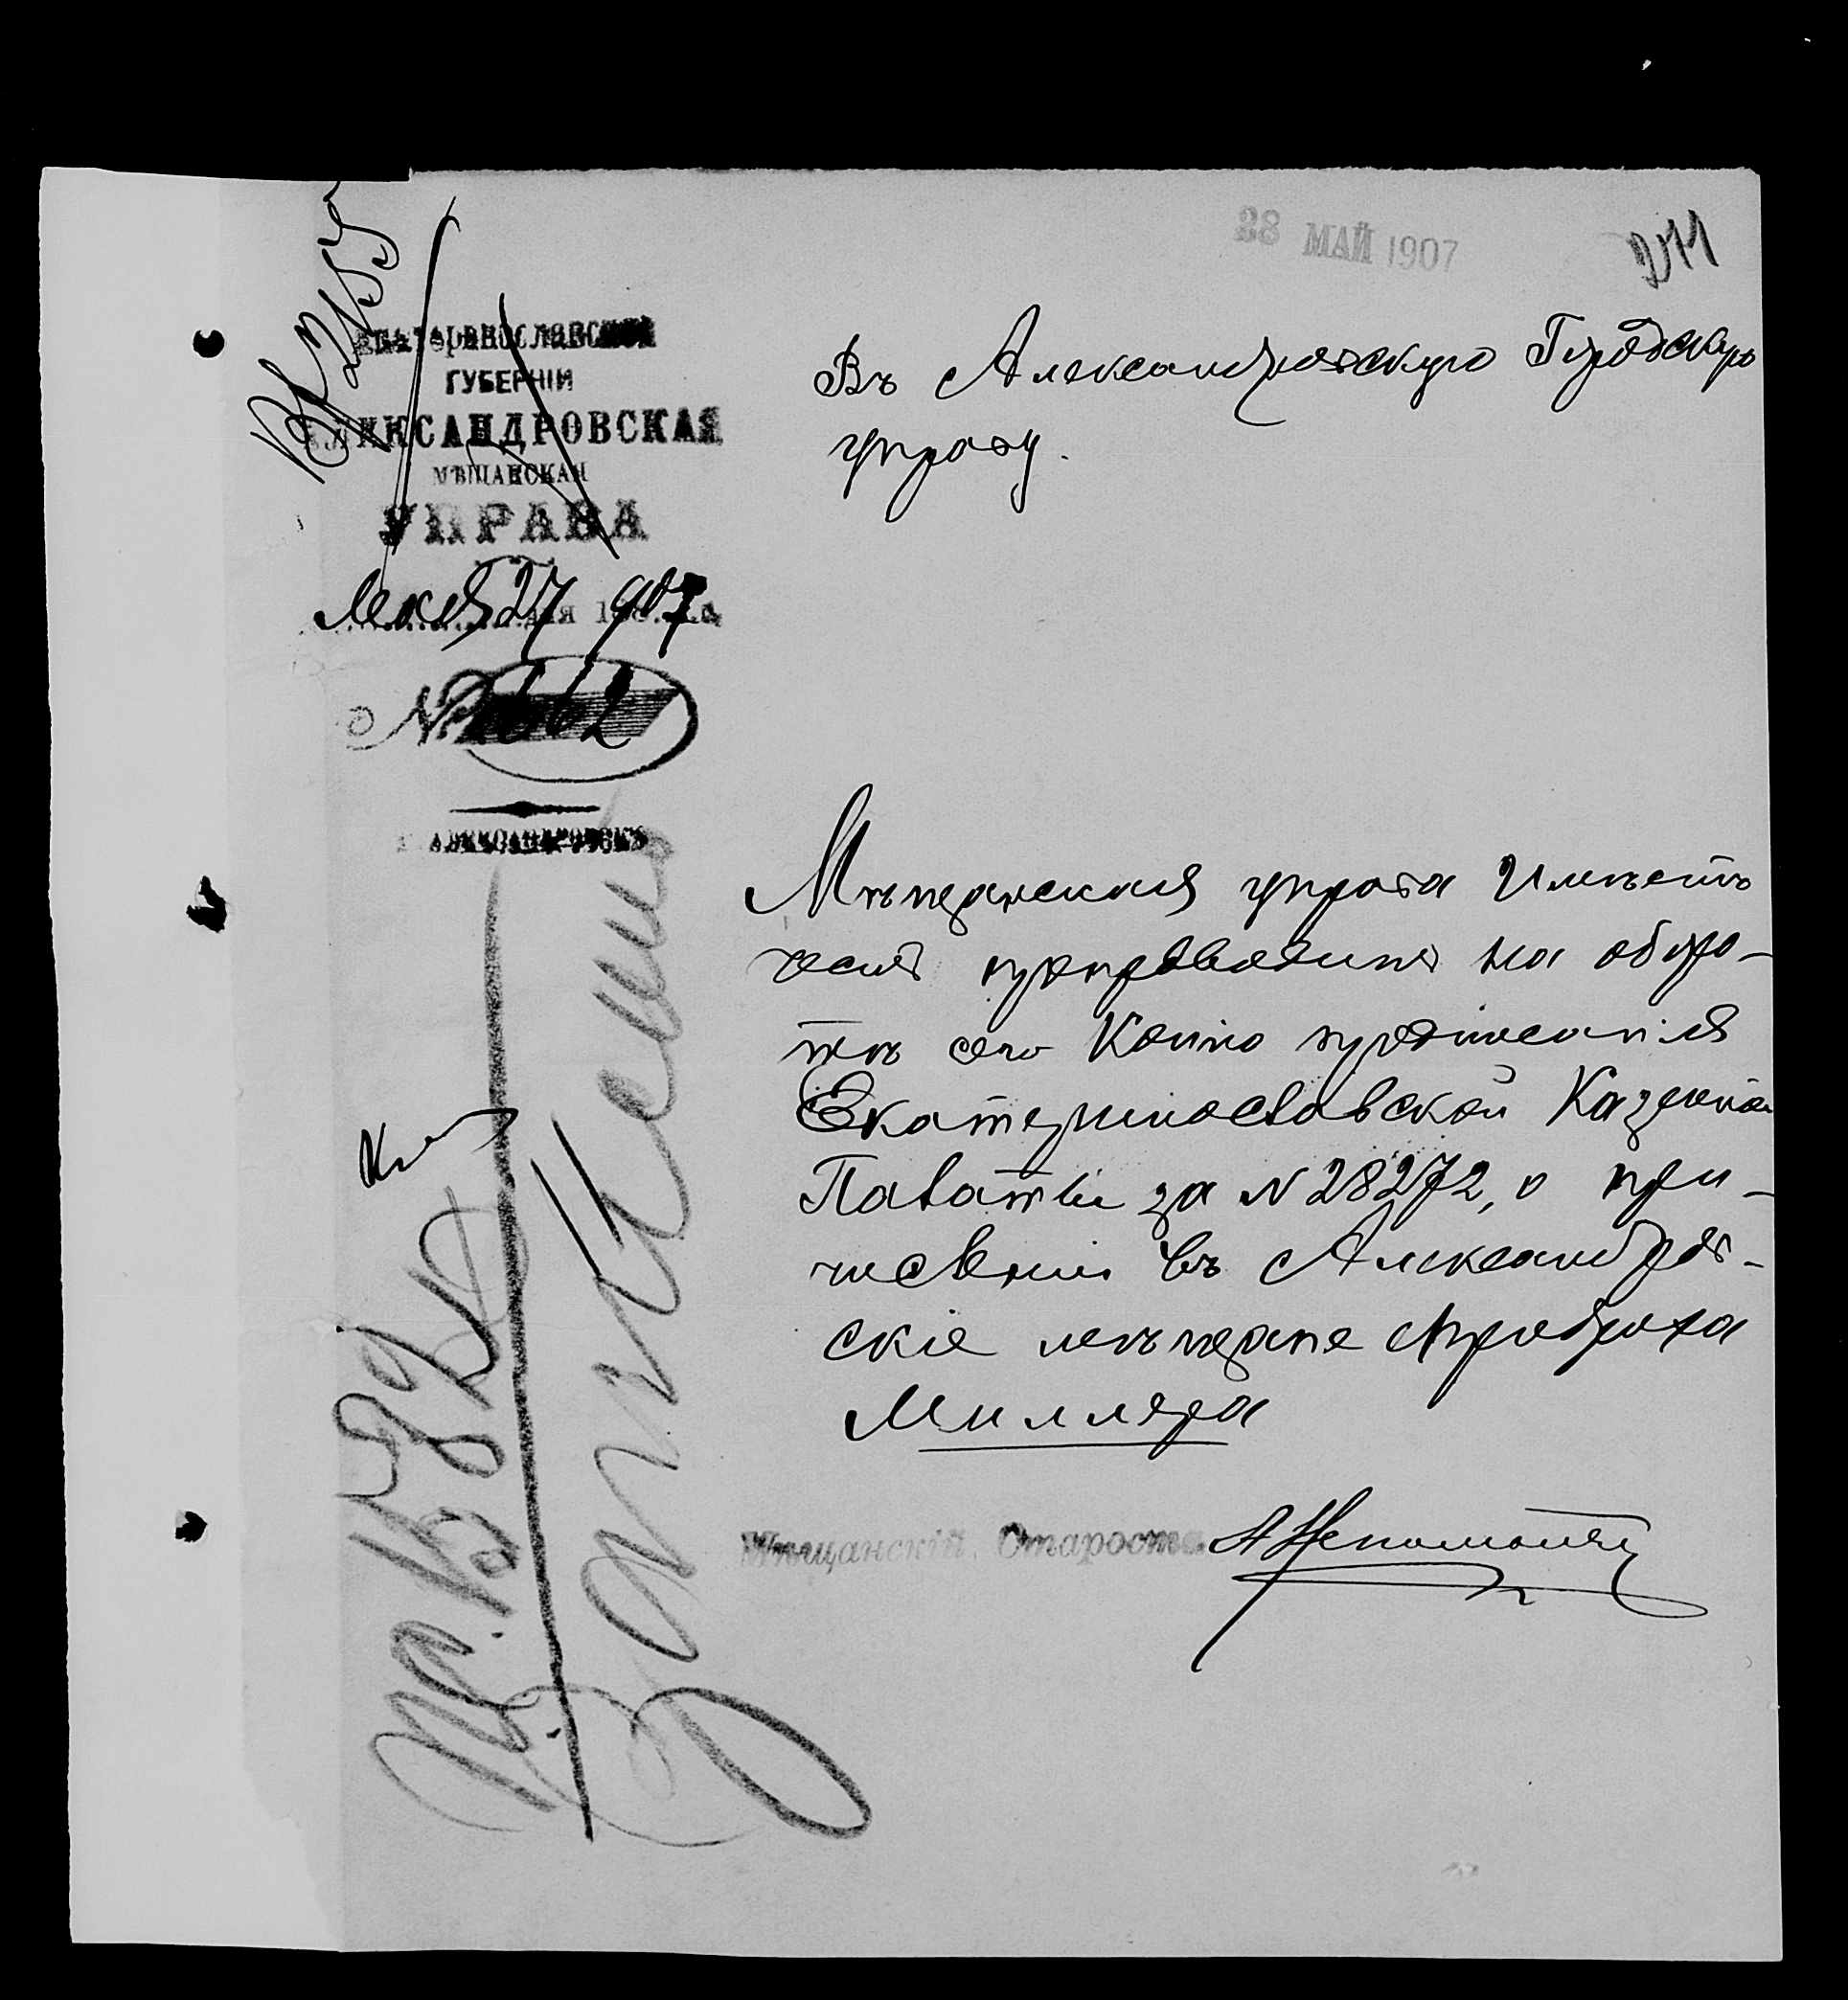 28 МАЙ 1907
Екатеринославской
ГУБЕРНІИ
АЛЕКСАНДРОВСКАЯ
МѢЩАНСКАЯ
УПРАВА
Мая 27 дня 1907 г.
г. АЛЕКСАНДРОВСКЪ
Въ Александровскую Городскую
управу.
Мѣщанская управа имѣетъ
честь препроводить на оборо-
тѣ сего копію предписанія
Екатеринославской Казенной
Палаты за № 28272, о при-
численіи въ Александров-
скіе мѣщане
Миллера
Мѣщанскій Староста